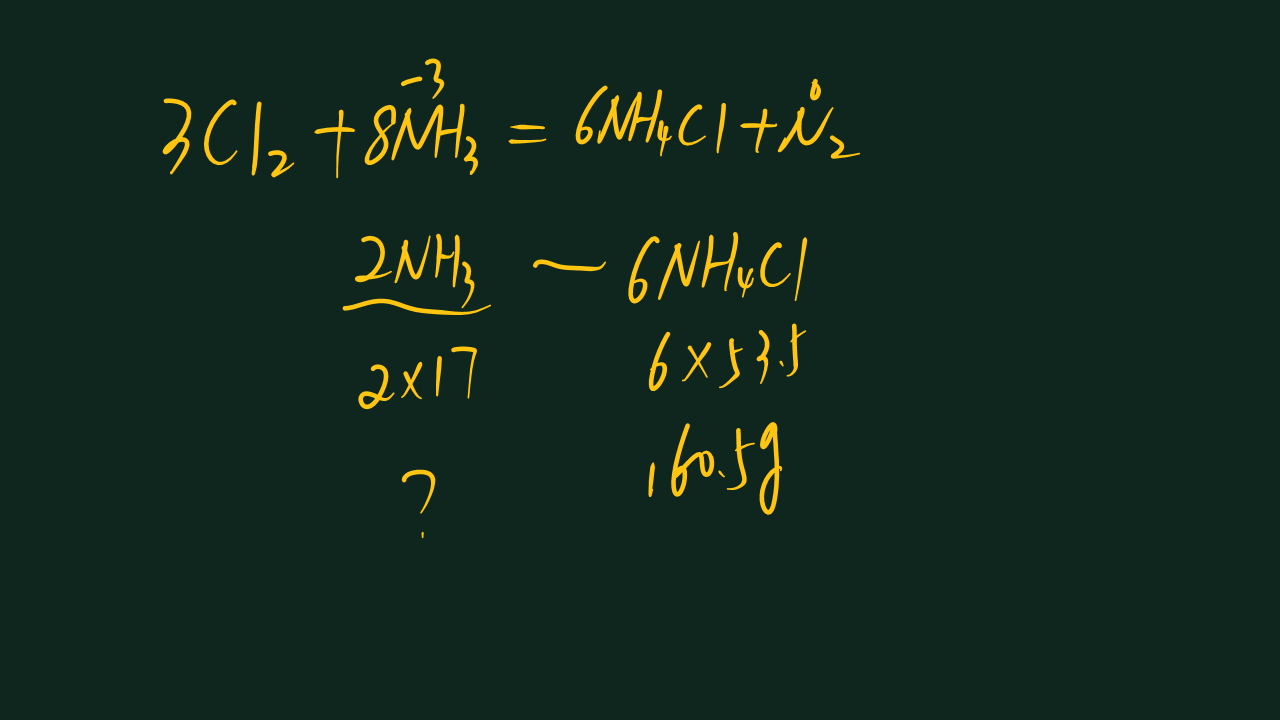 -3 0
3Cl₂ + 8NH₃ = 6NH₄Cl + N₂
2NH₃ ~ 6NH₄Cl
2×17 6×53.5
? 160.5g